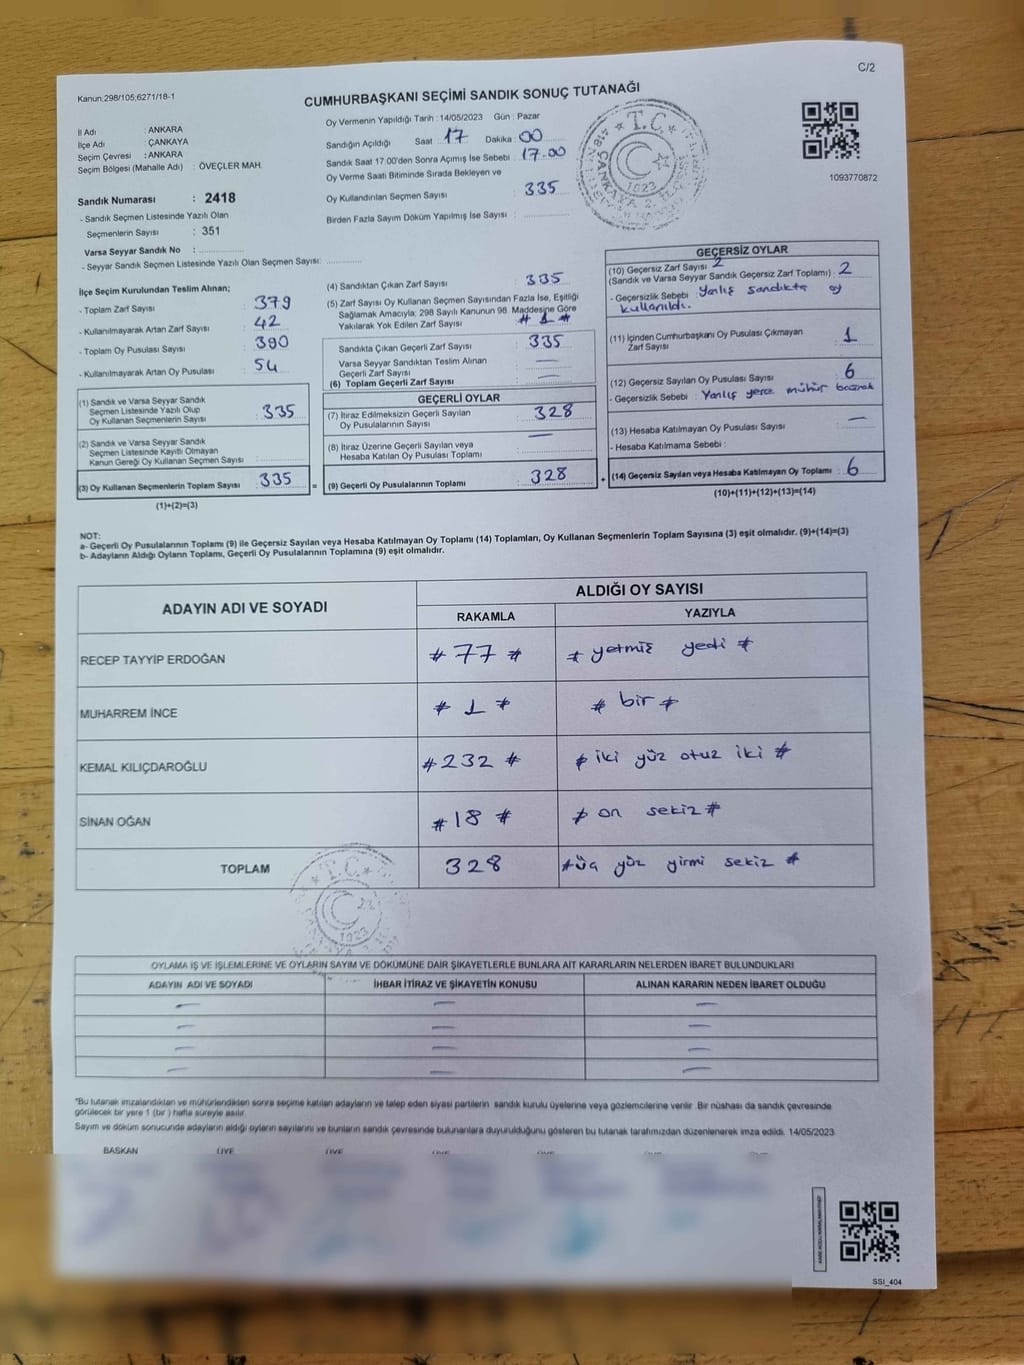 C/2
Kanun:298/105;6271/18-1
CUMHURBAŞKANI SEÇİMİ SANDIK SONUÇ TUTANAĞI
İl Adı : ANKARA
İlçe Adı : ÇANKAYA
Seçim Çevresi : ANKARA
Seçim Bölgesi (Mahalle Adı) : ÖVEÇLER MAH.
Sandık Numarası : 2418
- Sandık Seçmen Listesinde Yazılı Olan
Seçmenlerin Sayısı : 351
Varsa Seyyar Sandık No :
- Seyyar Sandık Seçmen Listesinde Yazılı Olan Seçmen Sayısı:
Oy Vermenin Yapıldığı Tarih : 14/05/2023 Gün : Pazar
Sandığın Açıldığı Saat 17 Dakika : 00
Sandık Saat 17.00'den Sonra Açılmış İse Sebebi : 17.00
Oy Verme Saati Bitiminde Sırada Bekleyen ve
Oy Kullandırılan Seçmen Sayısı : 335
Birden Fazla Sayım Döküm Yapılmış İse Sayısı :
T.C.
1923
1093770872
İlçe Seçim Kurulundan Teslim Alınan;
- Toplam Zarf Sayısı : 379
- Kullanılmayarak Artan Zarf Sayısı : 42
- Toplam Oy Pusulası Sayısı : 390
- Kullanılmayarak Artan Oy Pusulası : 54
(1) Sandık ve Varsa Seyyar Sandık
Seçmen Listesinde Yazılı Olup
Oy Kullanan Seçmenlerin Sayısı : 335
(2) Sandık ve Varsa Seyyar Sandık
Seçmen Listesinde Kayıtlı Olmayan
Kanun Gereği Oy Kullanan Seçmen Sayısı :
(3) Oy Kullanan Seçmenlerin Toplam Sayısı : 335
(1)+(2)=(3)
(4) Sandıktan Çıkan Zarf Sayısı : 335
(5) Zarf Sayısı Oy Kullanan Seçmen Sayısından Fazla İse, Eşitliği
Sağlamak Amacıyla; 298 Sayılı Kanunun 98. Maddesine Göre
Yakılarak Yok Edilen Zarf Sayısı : # 1 #
Sandıkta Çıkan Geçerli Zarf Sayısı : 335
Varsa Seyyar Sandıktan Teslim Alınan
Geçerli Zarf Sayısı : —
(6) Toplam Geçerli Zarf Sayısı : —
GEÇERLİ OYLAR
(7) İtiraz Edilmeksizin Geçerli Sayılan
Oy Pusulalarının Sayısı : 328
(8) İtiraz Üzerine Geçerli Sayılan veya
Hesaba Katılan Oy Pusulası Toplamı : —
= (9) Geçerli Oy Pusulalarının Toplamı : 328 +
GEÇERSİZ OYLAR
(10) Geçersiz Zarf Sayısı 2
(Sandık ve Varsa Seyyar Sandık Geçersiz Zarf Toplamı) : 2
- Geçersizlik Sebebi : Yanlış sandıkta oy
kullanıldı.
(11) İçinden Cumhurbaşkanı Oy Pusulası Çıkmayan
Zarf Sayısı : 1
(12) Geçersiz Sayılan Oy Pusulası Sayısı : 6
- Geçersizlik Sebebi : Yanlış yere mühür basmak
(13) Hesaba Katılmayan Oy Pusulası Sayısı : —
- Hesaba Katılmama Sebebi :
(14) Geçersiz Sayılan veya Hesaba Katılmayan Oy Toplamı : 6
(10)+(11)+(12)+(13)=(14)
NOT:
a- Geçerli Oy Pusulalarının Toplamı (9) ile Geçersiz Sayılan veya Hesaba Katılmayan Oy Toplamı (14) Toplamları, Oy Kullanan Seçmenlerin Toplam Sayısına (3) eşit olmalıdır. (9)+(14)=(3)
b- Adayların Aldığı Oyların Toplamı, Geçerli Oy Pusulalarının Toplamına (9) eşit olmalıdır.
ADAYIN ADI VE SOYADI ALDIĞI OY SAYISI
RAKAMLA YAZIYLA
RECEP TAYYİP ERDOĞAN # 77 # # yetmiş yedi #
MUHARREM İNCE # 1 # # bir #
KEMAL KILIÇDAROĞLU # 232 # # iki yüz otuz iki #
SİNAN OĞAN # 18 # # on sekiz #
TOPLAM 328 # üç yüz yirmi sekiz #
T.C.
1923
OYLAMA İŞ VE İŞLEMLERİNE VE OYLARIN SAYIM VE DÖKÜMÜNE DAİR ŞİKAYETLERLE BUNLARA AİT KARARLARIN NELERDEN İBARET BULUNDUKLARI
ADAYIN ADI VE SOYADI İHBAR İTİRAZ VE ŞİKAYETİN KONUSU ALINAN KARARIN NEDEN İBARET OLDUĞU
— — —
— — —
— — —
— — —
*Bu tutanak imzalandıktan ve mühürlendikten sonra seçime katılan adayların ve talep eden siyasi partilerin sandık kurulu üyelerine veya gözlemcilerine verilir. Bir nüshası da sandık çevresinde
görülecek bir yere 1 (bir) hafta süreyle asılır.
Sayım ve döküm sonucunda adayların aldığı oyların sayılarını ve bunların sandık çevresinde bulunanlara duyurulduğunu gösteren bu tutanak tarafımızdan düzenlenerek imza edildi. 14/05/2023
BAŞKAN ÜYE ÜYE
SSI_404